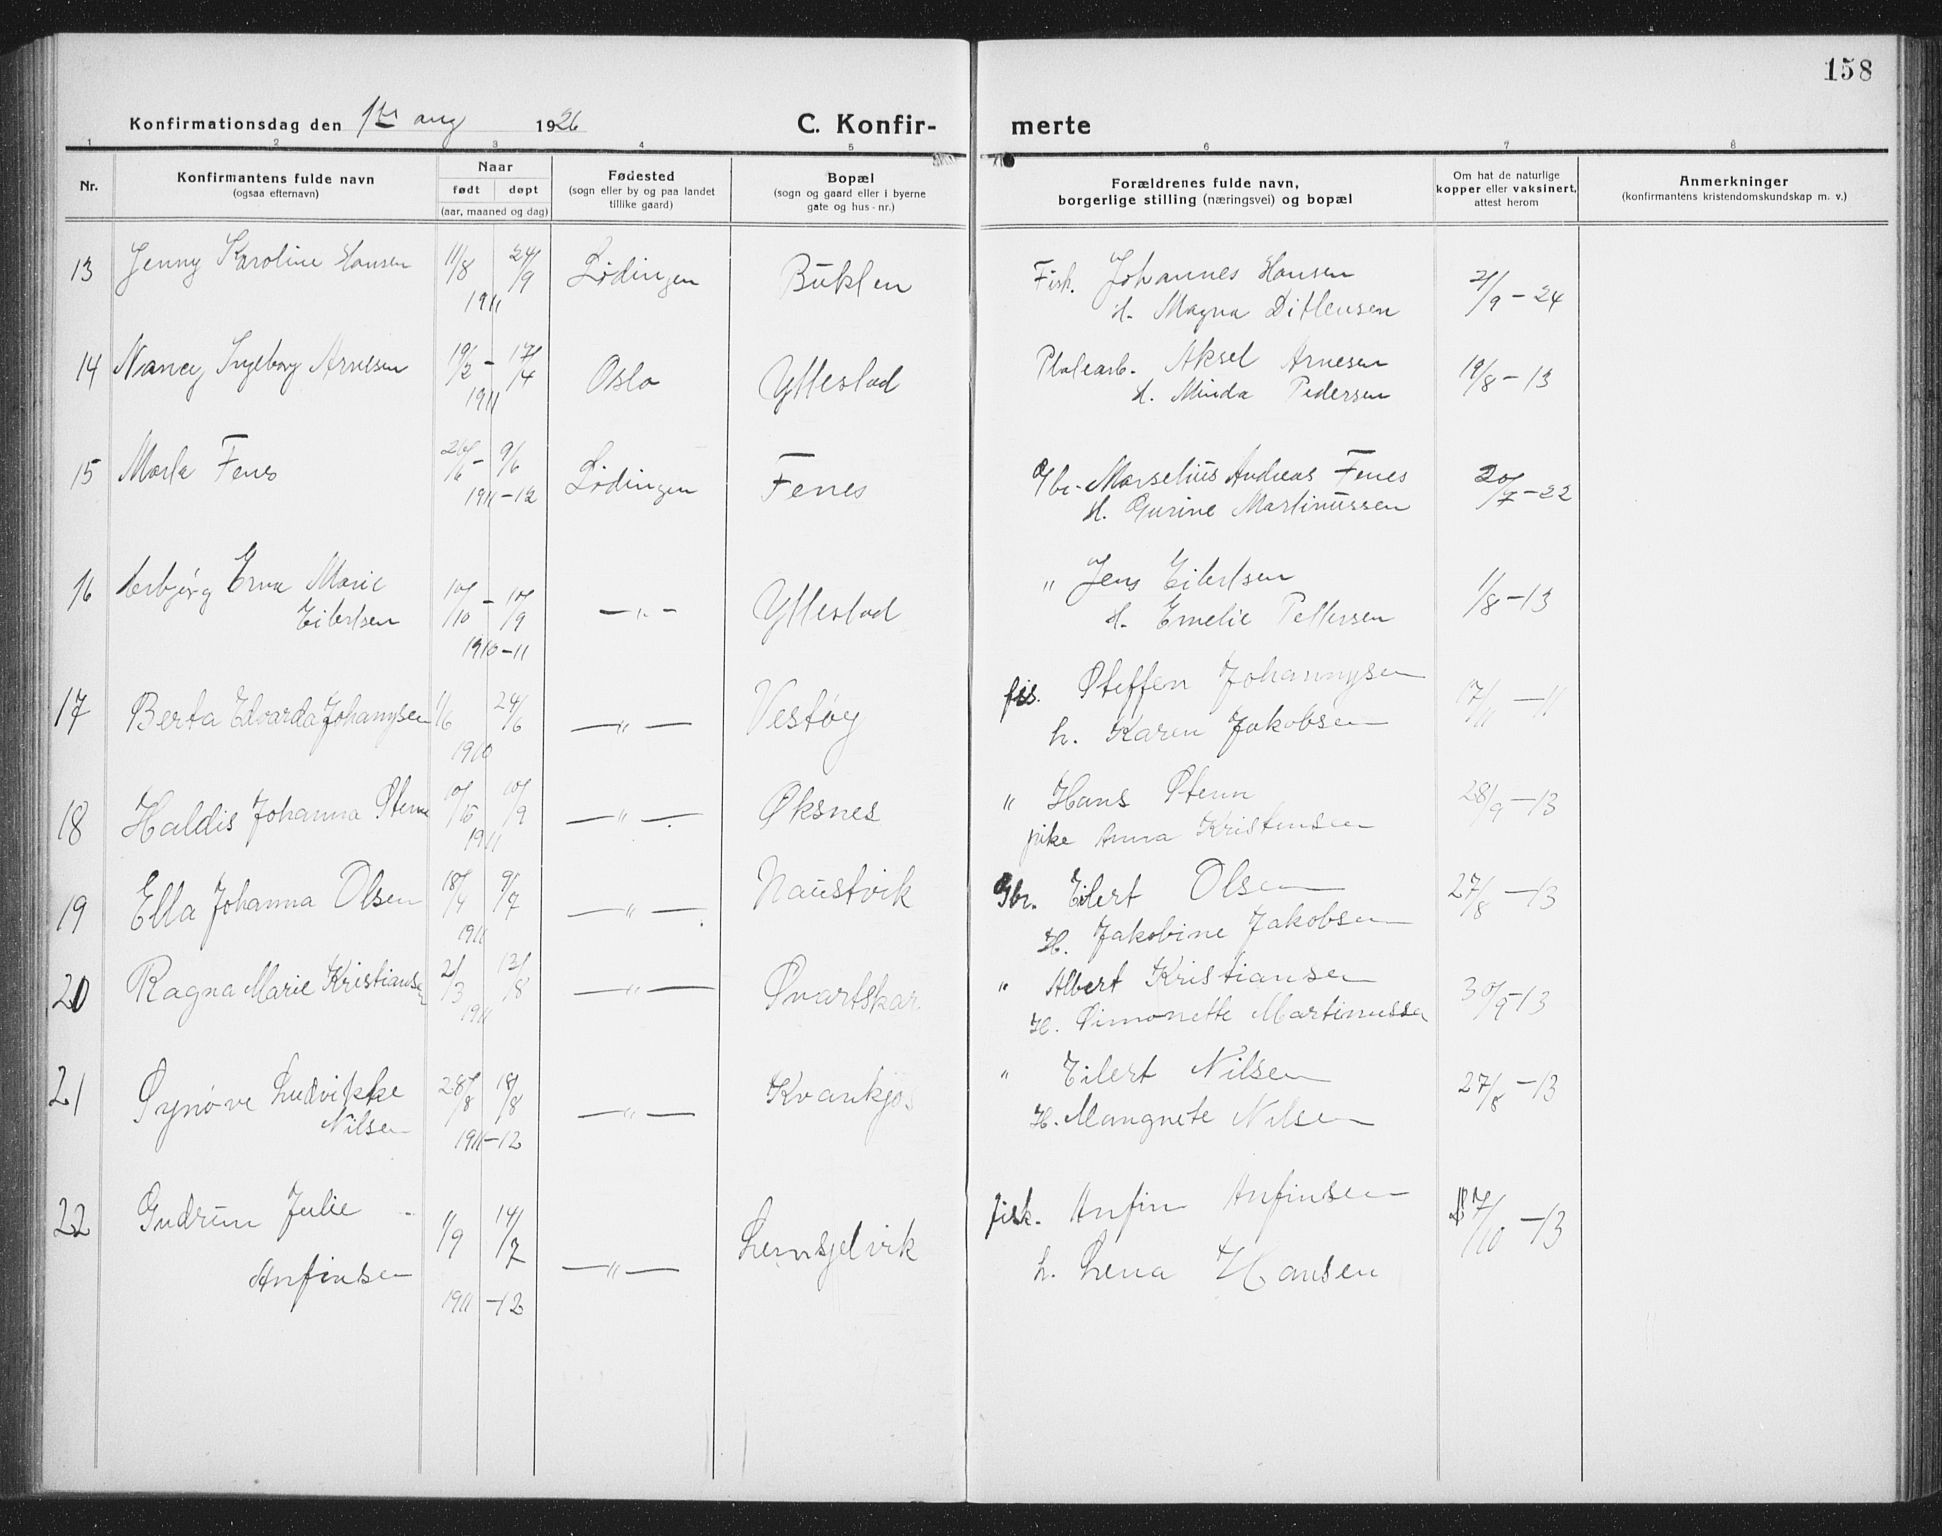 158
Konfirmationsdag den 1ste aug 1926
C. Konfir- merte
1 2 3 4 5 6 7 8
Nr.
Konfirmantens fulde navn
(ogsaa efternavn)
Naar
født døpt
(aar, maaned og dag)
Fødested
(sogn eller by og paa landet
tillike gaard)
Bopæl
(sogn og gaard eller i byerne
gate og hus-nr.)
Forældrenes fulde navn,
borgerlige stilling (næringsvei) og bopæl
Om hat de naturlige
kopper eller vaksinert,
attest herom
Anmerkninger
(konfirmantens kristendomskundskap m. v.)
13 Jenny Karoline Hansen 11/8 24/9 Lødingen Buklen Fisk. Johannes Hansen 21/9 - 24
1911 H. Magna Ditlevsen
14 Nancy Ingeborg Arnesen 19/2 - 17/4 Oslo Yttestad Aksel Arnesen 19/8 - 13
1911 H. Minda Pedersen
15 Marla Fenes 26/6 - 9/6 Lødingen Fenes Gbr. Marselius Andreas Fenes 20/7 - 22
1911 - 12 H. Gurine Martinussen
16 Asbjørg Erna Marie 10/10 - 10/9 — " — Yttestad " Jens Eilertsen 1/8 - 13
Eilertsen 1910 - 11 H. Emelie Pettersen
17 Berta Edvarda Johannysen 1/6 24/6 — " — Vestøy fis. Steffen Johannysen 17/11 - 11
1910 h. Karen Jakobsen
18 Haldis Johanna Stenn 10/9 — " — Øksnes " Hans Stenn 28/9 - 13
1911 pike Anna Kristensen
19 Ella Johanna Olsen 18/4 9/7 — " — Naustvik Gbr. Eilert Olsen 27/8 - 13
1911 H. Jakobine Jakobsen
20 Ragna Marie Kristiansen 2/3 13/8 — " — Svartskar " Albert Kristiansen 30/9 - 13
1911 H. Simonette Martinussen
21 Synøve Ludvikke 28/8 18/8 — " — Kvankjos " Eilert Nilsen 27/8 - 13
Nilsen 1911 - 12 H. Mangnete Nilsen
22 Gudrun Julie 1/9 14/7 — " — fisk. Anfin Anfinsen 17/10 - 13
Anfinsen 1911 - 12 h. Lena Hansen